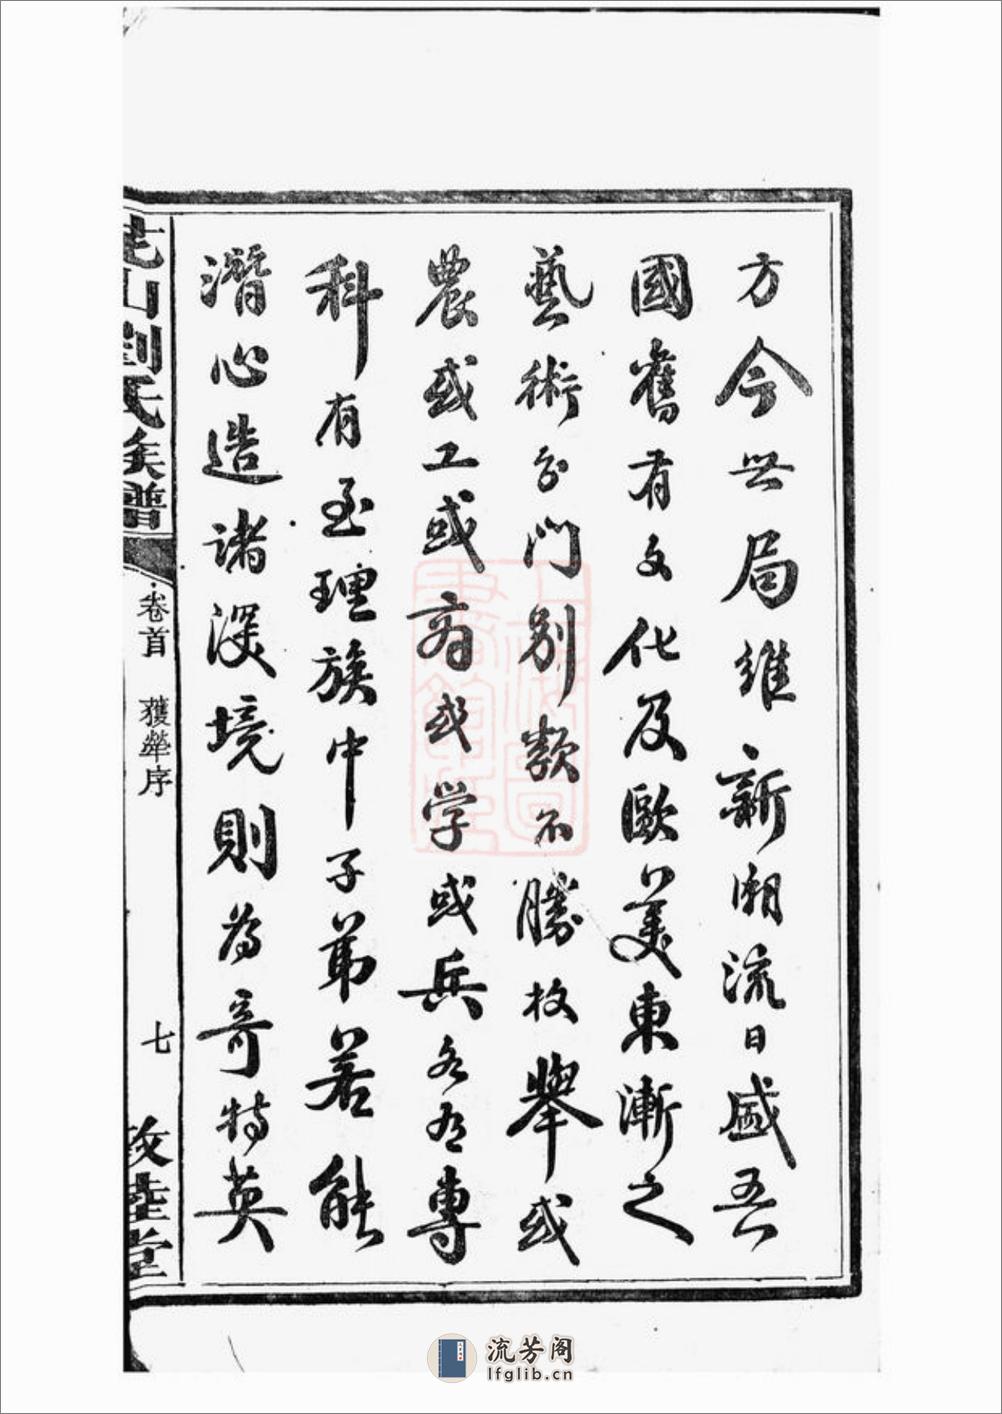 方今世局維新潮流日盛吾
國舊有文化及歐美東漸之
藝術分門別類不勝枚舉或
農或工或商或学或兵各有專
科有至理族中子弟若能
潛心造諸深境則為奇特英
山劉氏族譜
卷首
獲犖序
七
敦睦堂
流芳阁
lfglib.cn